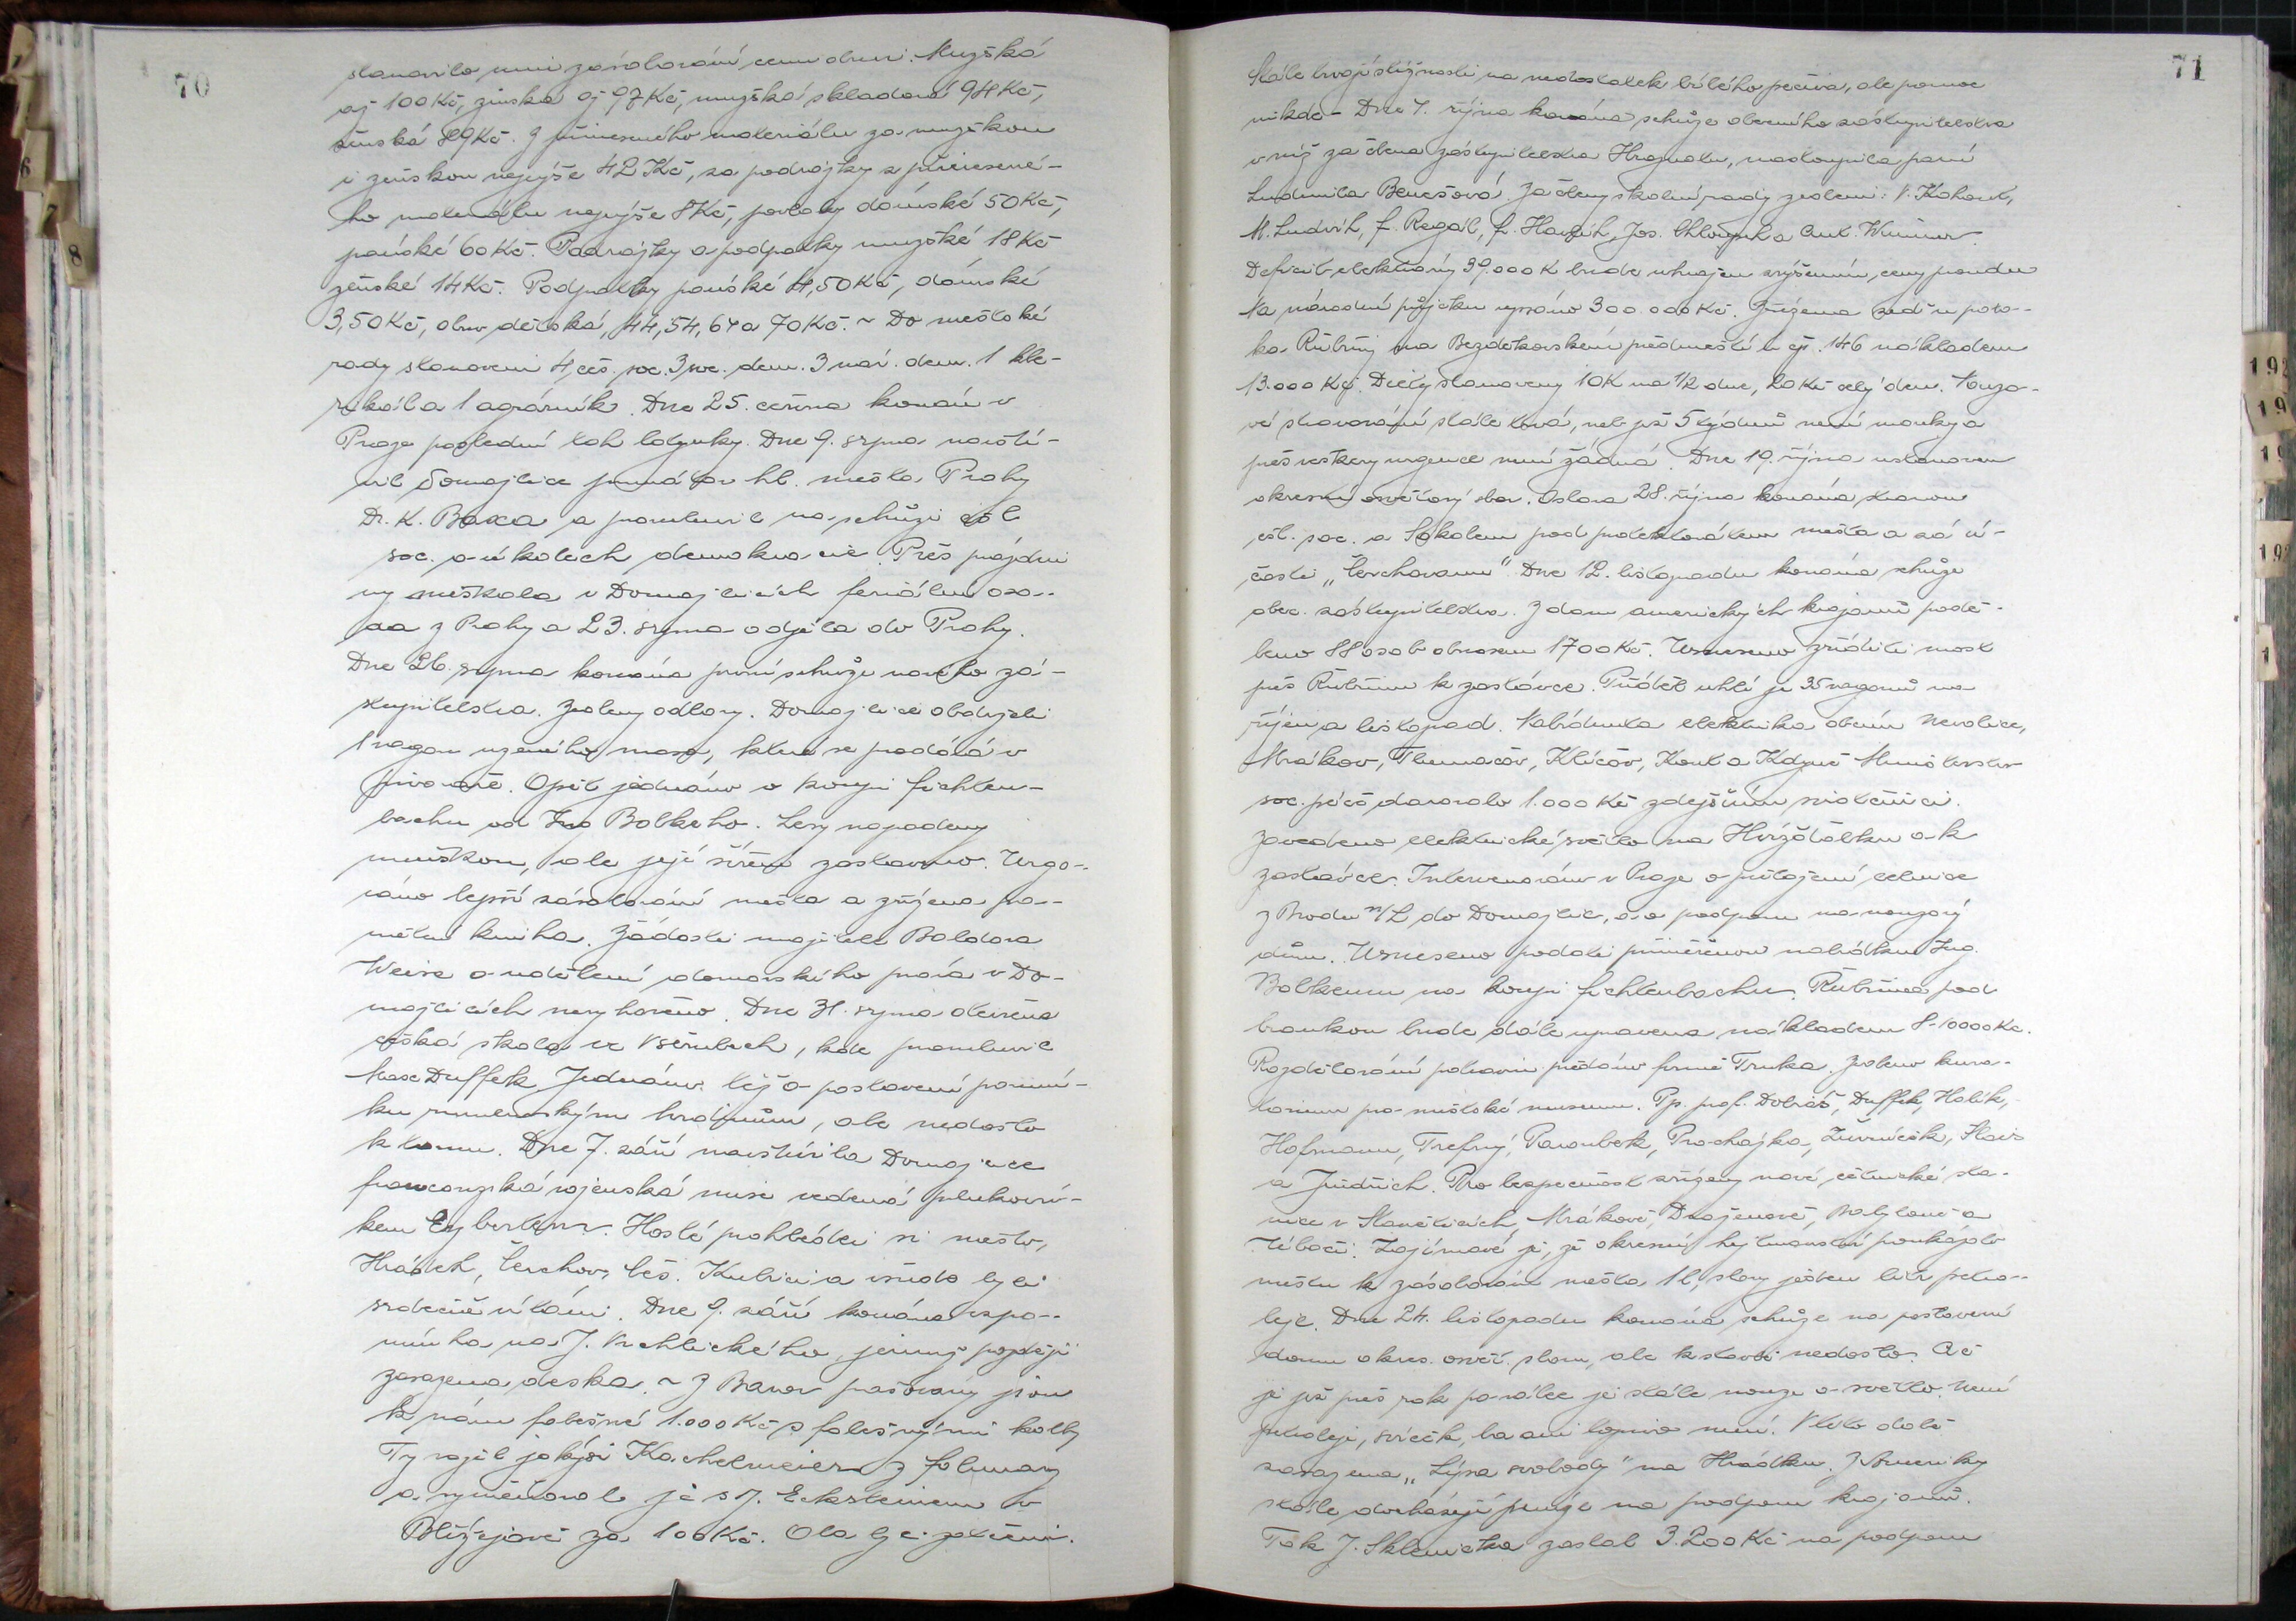 70
stanovilo nmi zásobování cenu obuvi. Mužská
oj 100 Kč, ženská oj 97 Kč, mužská skladová 94 Kč,
ženská 89 Kč. Z přineseného materiálu za mužskou
i ženskou nejvýše 42 Kč, za podrážky z přinesené-
ho materiálu nejvýše 8 Kč, povlaky dámské 50 Kč,
pánské 60 Kč. Podrážky a podpatky mužské 18 Kč
ženské 14 Kč. Podpatky pánské 4,50 Kč, dámské
3,50 Kč, obuv dětská, 44, 54, 64 a 70 Kč. ~ Do městské
rady stanoveni 4 čes. soc. 3 soc. dem. 3 nár. dem. 1 kle-
rikál a 1 agrárník. Dne 25. června konán v
Praze poslední tah lotynky. Dne 9. srpna navští-
vil Domažlice primátor hl. města Prahy
Dr. K. Baxa a promluvil na schůzi čsl
soc. o úkolech demokracie. Přes prázdni
ny meškala v Domažlicích feriální osa-
da z Prahy a 23. srpna odjela do Prahy.
Dne 26. srpna konána první schůze nového za-
stupitelstva. Zvoleny odbory. Domažlice obdržely
1 vagon uzeného masa, které se prodává v
pivovaře. Opět jednáno o koupi Fichten-
bachu od Ing Bolkeho. Lesy napadeny
mniškou, ale její šíření zastaveno. Urgo-
váno lepší zásobování města a zřízena pa-
mětní kniha. Žádosti majitele Baldova
Weise o udělení domovského práva v Do-
mažlicích nevyhověno. Dne 31. srpna otevřena
česká škola ve Všerubech, kde promluvil
Max Duffek Jednáno též o postavení pomní-
ku rumunským hrdinům, ale nedošlo
k tomu. Dne 7. září navštívila Domažlice
francouzská vojenská mise vedená plukovní-
kem Eybertem. Hosté prohlédli si město,
Hrádek, Čerchov, Čes. Kubici a všude byli
srdečně vítáni. Dne 9. září konána vzpo-
mínka na J. Vrchlického, jemuž později
zasazena deska. ~ Z Bavor pašovány jsou
k nám falešné 1.000 Kč s falešnými kolky
Ty vozil jakýsi Kachelmeier z Folmavy
a vyměňoval je s J. Ecksteinem v
Blížejově za 100 Kč. Oba byli zatčeni.
71
Stále trvají stížnosti na nedostatek bílého pečiva, ale pomoc
nikde - Dne 7. října konána schůze obecního zastupitelstva
v níž za člena zastupitelstva Hragnatu, nastoupila paní
Ludmila Benešová. Za členy školní rady zvoleni: V. Kohout,
M. Ludvík, F. Regál, F. Havlík, Jos. Chloupek a Ant. Wimmer.
Deficit elektrárny 39.000 K bude uhrazen zvýšením ceny proudu
Na národní půjčku upsáno 300.000 Kč. Zřízena zeď u poto-
ka Rubřiny na Bezděkovském předměstí u čp. 146 nákladem
13.000 Kč. Diety stanoveny 10 K na 1/2 dne, 20 Kč celý den. Nouzo-
vé stravování stále trvá, neb již 5 týdnů není mouky a
přes veškery urgence není žádná. Dne 19. října ustanoven
okresní osvětový sbor. Oslava 28. října konána stranou
čsl. soc. a Sokolem pod protektorátem města a za ú-
časti „Čerchovanu“. Dne 12. listopadu konána schůze
obec. zastupitelstva. Z daru amerických krajanů podě-
leno 88 osob obnosem 1700 Kč. Usneseno zříditi most
přes Rubřinu k zastávce. Příděl uhlí je 35 vagonů na
říjen a listopad. Nabídnuta elektrika obcím Nevolice,
Mrákov, Tlumačov, Klíčov, Kout a Kdyně Ministerstvo
soc. péče darovalo 1.000 Kč zdejšímu sirotčinci.
Zavedeno elektrické světlo na Hvížďálku a k
zastávce. Intervenováno v Praze o přeložení celnice
z Brodu n/L do Domažlic, a o podporu na nouzový
dům. Usneseno podati přiměřenou nabídku Ing.
Bolkemu na koupi Fichtenbachu. Rubřina pod
brankou bude dále upravena nákladem 8-10000 Kč.
Rozdělování potravin předáno firmě Truka. Zvoleno kura-
torium pro městské museum. Pp. prof. Dobiáš, Duffek, Halík,
Hofmann, Trefný, Paroubek, Procházka, Žurníček, Stais
a Jindřich. Pro bezpečnost zřízeny nové četnické sta-
nice v Staněticích, Mrákově, Draženově, Babyloně a
Úboči. Zajímavé je, že okresní hejtmanství poukázalo
městu k zásobování města 1 l, slovy jeden litr petro-
leje. Dne 24. listopadu konána schůze na postavení
domu okres. osvět. sboru, ale k stavbě nedošlo. Ač
je již přes rok po válce je stále nouze o světlo. Není
petroleje, svíček, ba ani topiva není. V této době
zasazena „Lípa svobody“ na Hrádku. Z Ameriky
stále docházejí peníze na podporu krajanů.
Tak J. Sklenička zaslal 3.200 Kč na podporu